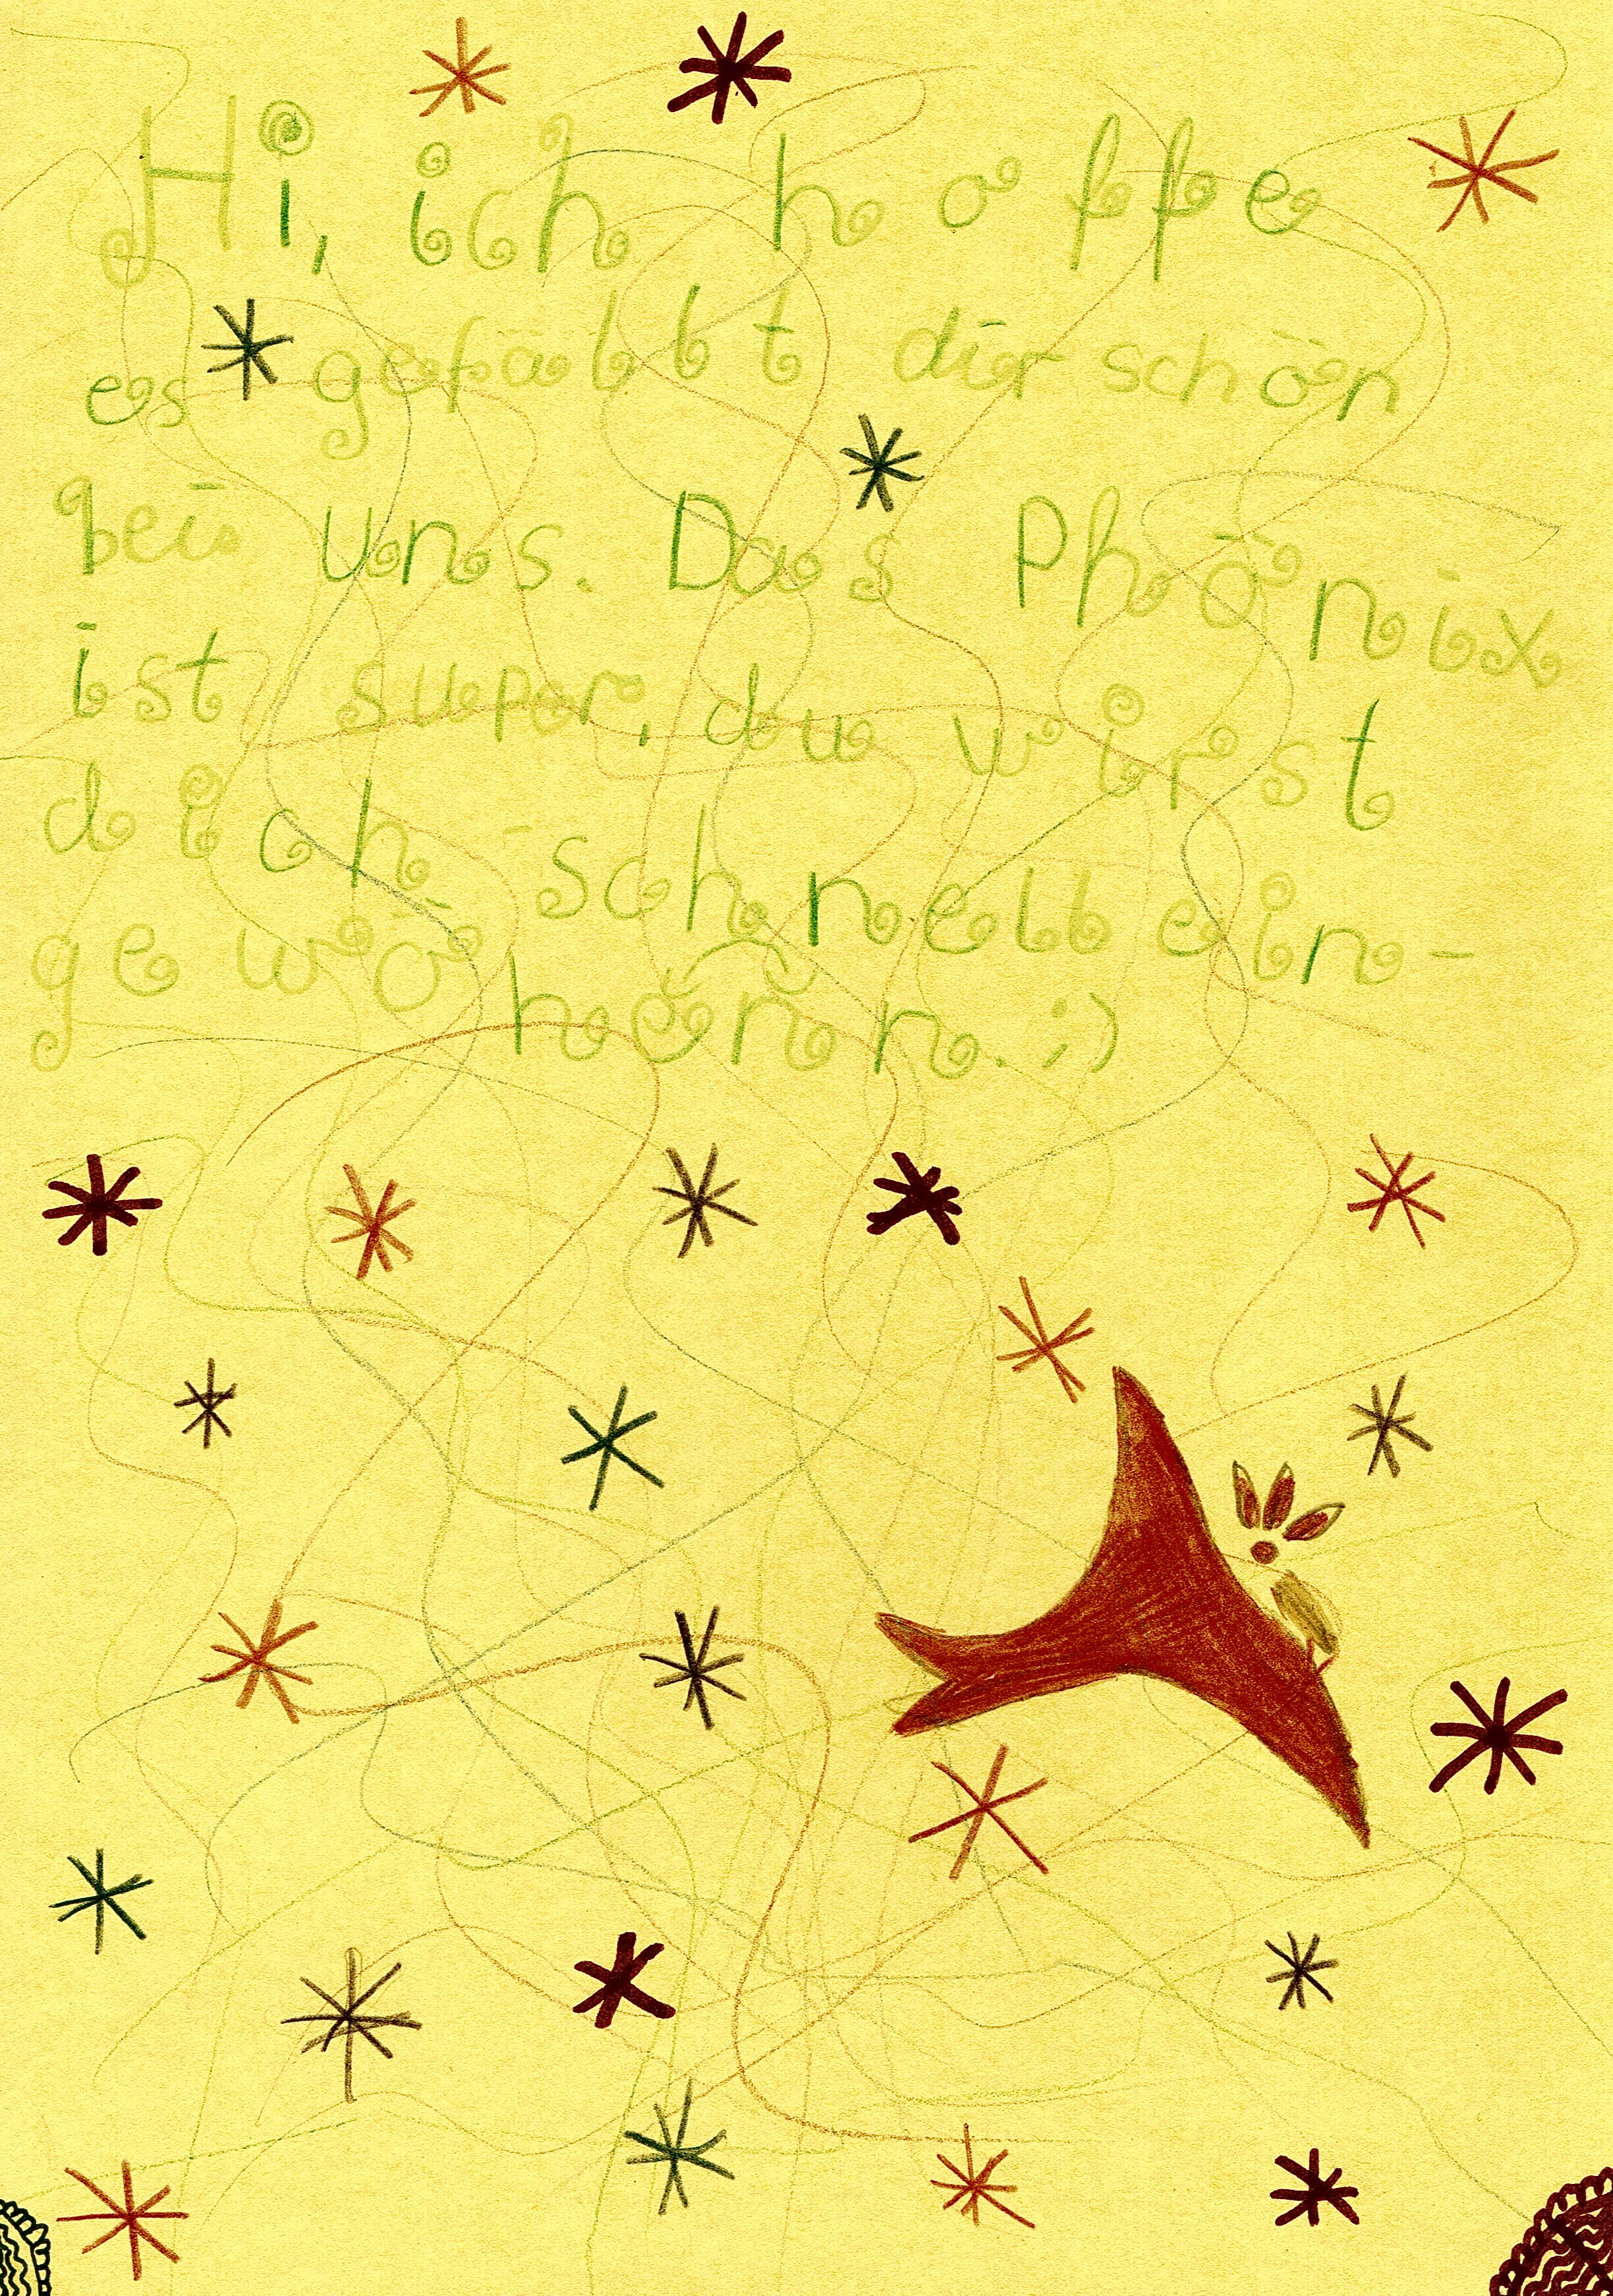 Hi, ich hoffe
es gefällt dir schön
bei uns. Das Phönix
ist super, du wirst
dich schnell ein-
gewöhnen. ;)